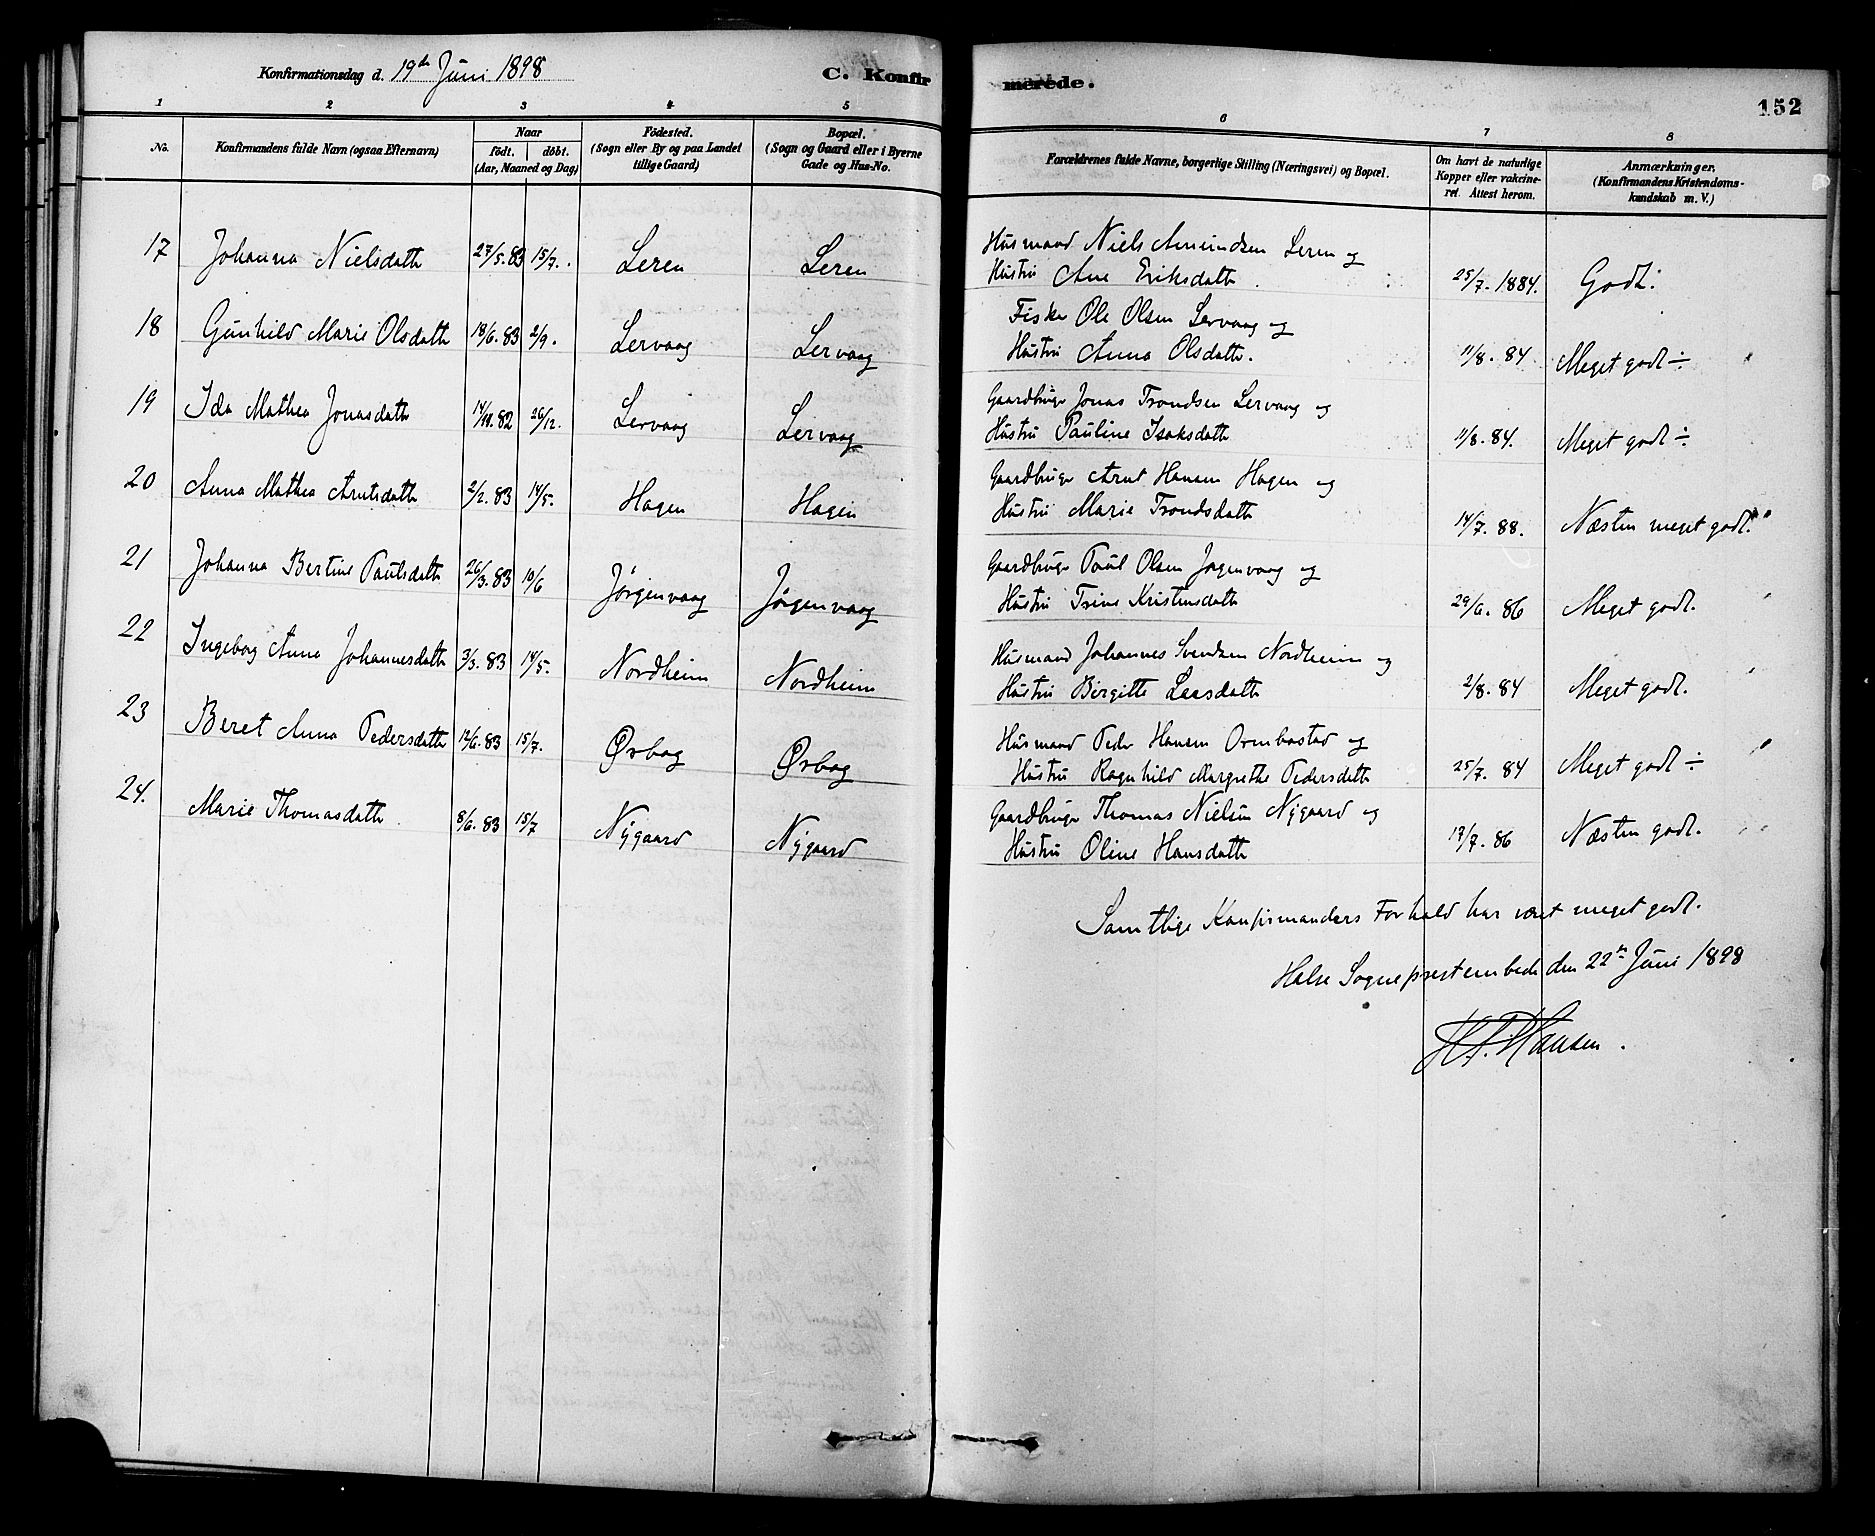 Konfirmationsdag d. 19de Juni 1898
C. Konfirmerede.
152
1 2 3 4 5 6 7 8
No.
Konfirmandens fulde Navn (ogsaa Efternavn)
Naar
födt. döbt.
(Aar, Maaned og Dag)
Födested.
(Sogn eller By og paa Landet
tillige Gaard)
Bopæl.
(Sogn og Gaard eller i Byerne
Gade og Hus-No.
Forældrenes fulde Navne, borgerlige Stilling (Næringsvei) og Bopæl.
Om havt de naturlige
Kopper eller vakcine-
ret. Attest herom.
Anmærkninger.
(Konfirmandens Kristendoms-
kundskab m. V.)
17 Johanna Nielsdatter 27/5.83 15/7. Leren Leren Husmand Niels Amundsen Leren og
Hustru Ane Eriksdatter 25/7.1884. Godt.
18 Gunhild Marie Olsdatter 18/6.83 2/9. Lervaag Lervaag Fisker Ole Olsen Lervaag og
Hustru Anna Olsdatter. 11/8.84 Meget godt ÷
19 Ida Mathea Jonasdatter 14/11.82 26/12. Lervaag Lervaag Gaardbruger Jonas Trondsen Lervaag og
Hustru Pauline Isaksdatter 11/8.84. Meget godt ÷
20 Anna Mathea Arntsdatter 2/2.83 14/5. Hagen Hagen Gaardbruger Arnt Hansen Hagen og
Hustru Marie Trondsdatter 14/7.88. Næsten meget godt.
21 Johanna Bertine Paulsdatter 26/3.83 10/6 Jörgenvaag Jörgenvaag Gaardbruger Paul Olsen Jörgenvaag og
Hustru Trine Kristensdatter 29/6.86 Meget godt.
22 Ingeborg Anna Johannesdatter 3/3.83 14/5. Nordheim Nordheim Husmand Johannes Svendsen Nordheim og
Hustru Birgitte Larsdatter 2/8.84 Meget godt.
23 Beret Anna Pedersdatter 12/6.83 15/7. Ørbog Ørbog Husmand Peder Hansen Ormbostad og
Hustru Ragnhild Margrethe Pedersdatter 25/7.84 Meget godt ÷
24. Marie Thomasdatter 8/6.83 15/7 Nygaard Nygaard Gaardbruger Thomas Nielsen Nygaard og
Hustru Oline Hansdatter 17/7.86 Næsten godt.
Samtlige Konfirmanders Forhold har været meget godt.
Halse Sogneprestembede den 22de Juni 1898
Hansen.